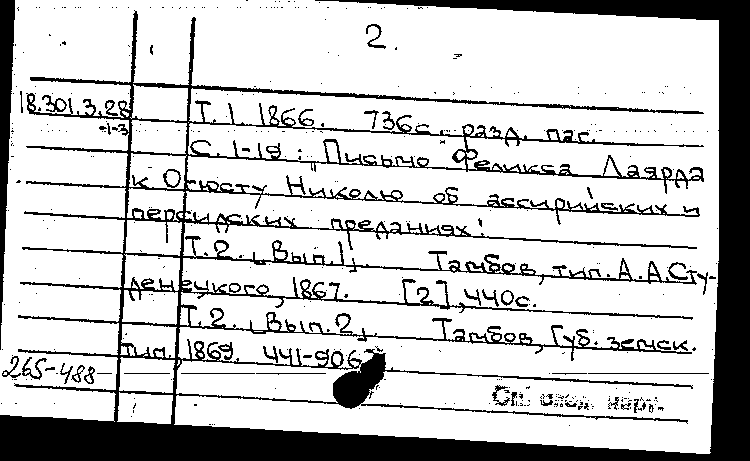 2.
18.301.3.28 Т. 1. 1866. 736с. разд. паг.
-1-3
С. 1-19: "Письмо Феликса Лаярда
к Огюсту Николю об ассирийских и
персидских преданиях".
Т. 2. [Вып. 1]. Тамбов, тип. А.А.Сту-
денецкого, 1867. [2], 440с.
Т. 2. [Вып. 2]. Тамбов, Губ. земск.
тип., 1869. 441-906
265-488
См. след. карт.